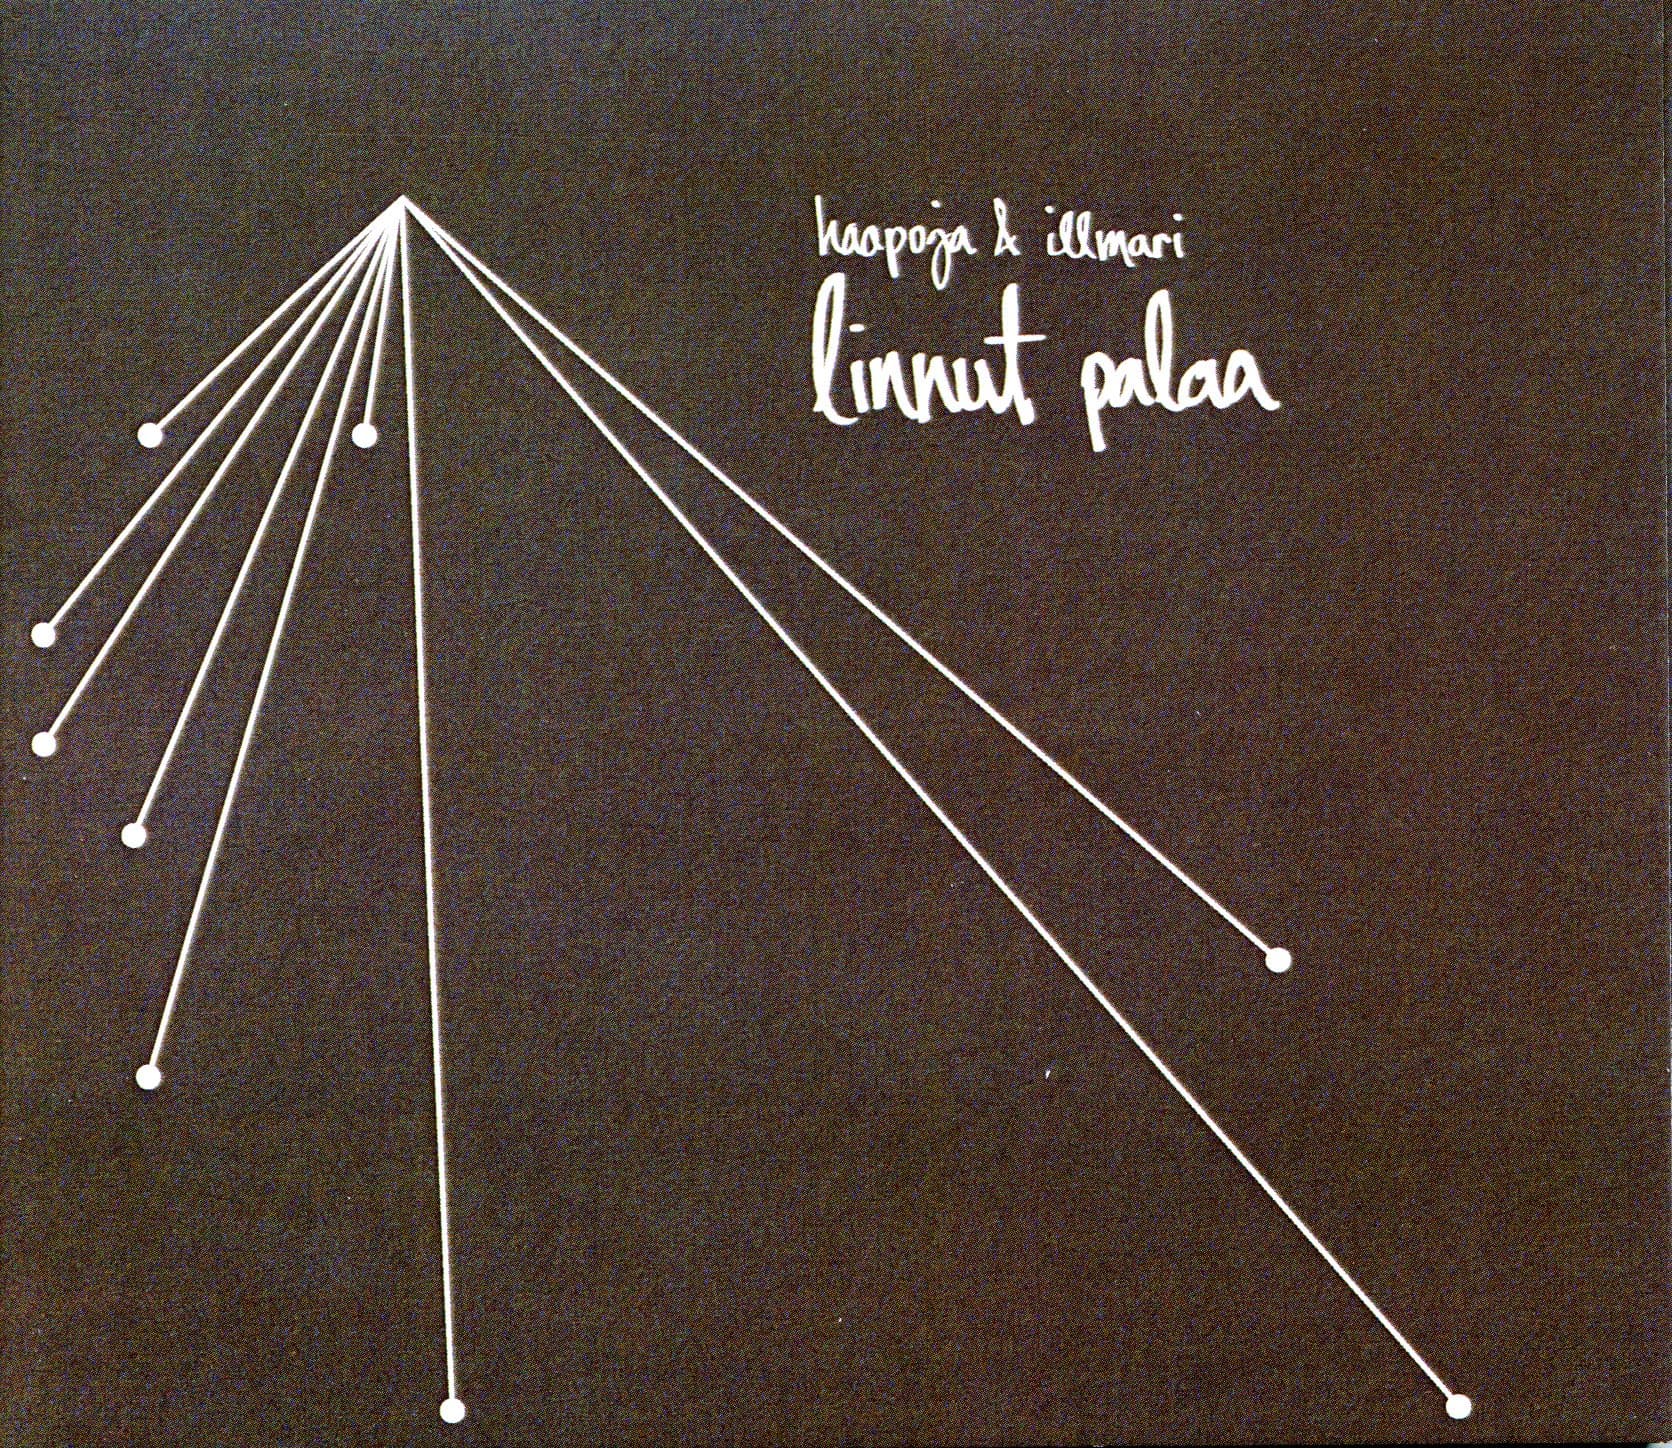 haapoja & illmari
linnut palaa